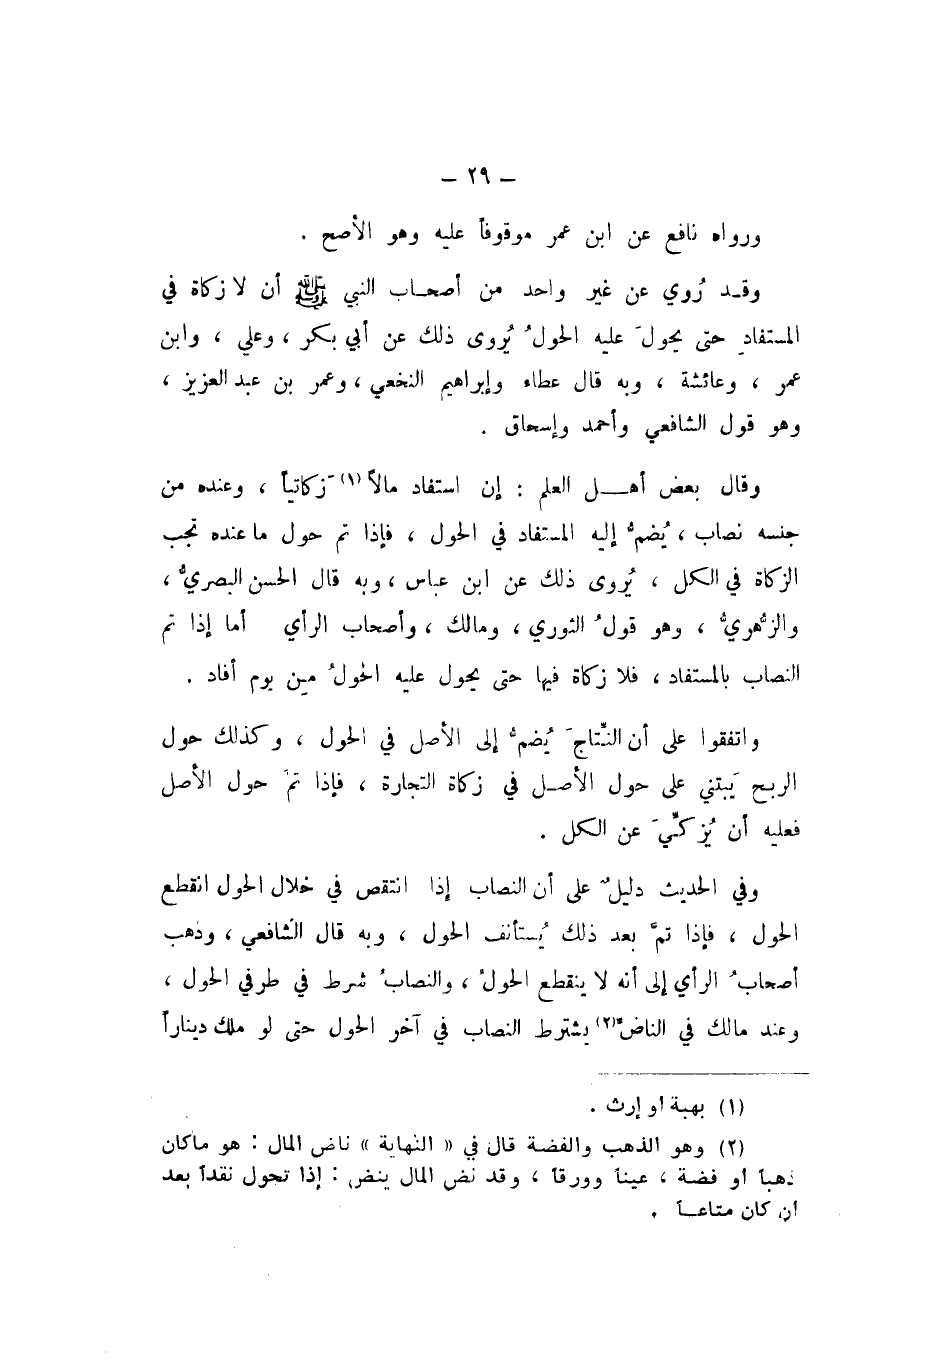 – ٢٩ –
ورواه نافع عن ابن عمر موقوفاً عليه وهو الأصح .
وقـد رُوي عن غير واحد من أصحـاب النبي ﷺ أن لا زكاة في
المستفاد حتى يحولَ عليه الحولُ يُروى ذلك عن أبي بكر ، وعلي ، وابن
عمر ، وعائشة ، وبه قال عطاء وإبراهيم النخعي ، وعمر بن عبد العزيز ،
وهو قول الشافعي وأحمد وإسحاق .
وقال بعض أهـــل العلم : إن استفاد مالاً (١) زكاتياً ، وعنده من
جنسه نصاب ، يُضمُّ إليه المستفاد في الحول ، فإذا تم حول ما عنده تجب
الزكاة في الكل ، يُروى ذلك عن ابن عباس ، وبه قال الحسن البصريُّ ،
والزُّهويُّ ، وهو قولُ الثوري ، ومالك ، وأصحاب الرأي أما إذا تم
النصاب بالمستفاد ، فلا زكاة فيها حتى يحول عليه الحولُ مِن يوم أفاد .
واتفقوا على أن النِّتاجَ يُضمُّ إلى الأصل في الحول ، وكذلك حول
الربح يَبتني على حول الأصـل في زكاة التجارة ، فإذا تمَّ حول الأصل
فعليه أن يُزكِّيَ عن الكل .
وفي الحديث دليلٌ على أن النصاب إذا انتقص في خلال الحول انقطع
الحول ، فإذا تمَّ بعد ذلك يُستأنف الحول ، وبه قال الشَّافعي ، وذهب
أصحابُ الرأي إلى أنه لا ينقطع الحولُ ، والنصابُ شرط في طرفي الحول ،
وعند مالك في الناضِّ (٢) يشترط النصاب في آخر الحول حتى لو ملك ديناراً
(١) بهبة أو إرث .
(٢) وهو الذهب والفضة قال في « النهاية » ناض المال : هو ماكان
ذهباً أو فضة ، عيناً وورقاً ، وقد نض المال ينض : إذا تحول نقداً بعد
أن كان متاعـاً .